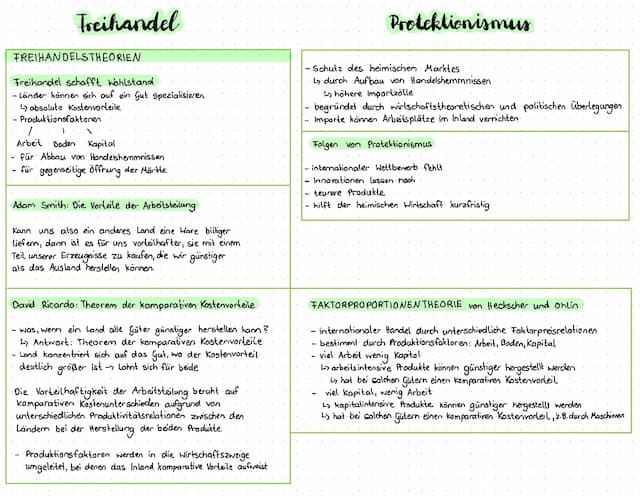 Freihandel
FREIHANDELSTHEORIEN
Freihandel schafft Wohlstand
- Länder können sich auf ein Gut spezialisieren
↳ absolute Kostenvorteile
- Produktionsfaktoren
/ | \
Arbeit Boden Kapital
- für Abbau von Handelshemmnissen
- für gegenseitige Öffnung der Märkte
Adam Smith: Die Vorteile der Arbeitsteilung
Kann uns also ein anderes Land eine Ware billiger
liefern, dann ist es für uns vorteilhafter, sie mit einem
Teil unserer Erzeugnisse zu kaufen, die wir günstiger
als das Ausland herstellen können.
David Ricardo: Theorem der komparativen Kostenvorteile
- was, wenn ein Land alle Güter günstiger herstellen kann?
↳ Antwort: Theorem der komparativen Kostenvorteile
- Land konzentriert sich auf das Gut, wo der Kostenvorteil
deutlich größer ist → lohnt sich für beide
Die Vorteilhaftigkeit der Arbeitsteilung beruht auf
komparativen Kostenunterschieden aufgrund von
unterschiedlichen Produktivitätsrelationen zwischen den
Ländern bei der Herstellung der beiden Produkte.
- Produktionsfaktoren werden in die Wirtschaftszweige
umgeleitet, bei denen das Inland komparative Vorteile aufweist
Protektionismus
- Schutz des heimischen Marktes
↳ durch Aufbau von Handelshemmnissen
↳ höhere Importzölle
- begründet durch wirtschaftstheoretischen und politischen Überlegungen
- Importe können Arbeitsplätze im Inland vernichten
Folgen von Protektionismus
- internationaler Wettbewerb fehlt
- Innovationen lassen nach
- teurere Produkte
- hilft der heimischen Wirtschaft kurzfristig
FAKTORPROPORTIONENTHEORIE von Heckscher und Ohlin
- internationaler Handel durch unterschiedliche Faktorpreisrelationen
- bestimmt durch Produktionsfaktoren: Arbeit, Boden, Kapital
- viel Arbeit wenig Kapital
↳ arbeitsintensive Produkte können günstiger hergestellt werden
↳ hat bei solchen Gütern einen komparativen Kostenvorteil
- viel Kapital, wenig Arbeit
↳ kapitalintensive Produkte können günstiger hergestellt werden
↳ hat bei solchen Gütern einen komparativen Kostenvorteil, z.B. durch Maschinen